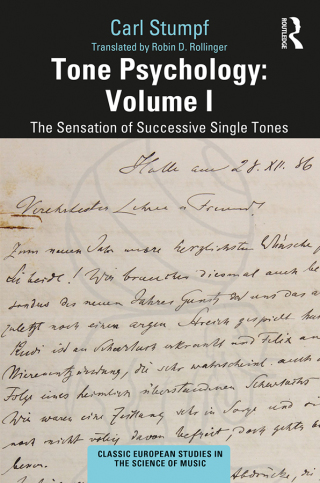 Carl Stumpf
Translated by Robin D. Rollinger
Tone Psychology:
Volume I
The Sensation of Successive Single Tones
R
Routledge
ROUTLEDGE
Halle am 28. XII. 86
Verehrtester Lehrer u Freund!
Zum neuen Jahr unsre herzlichsten Wünsche
Sie beide! Wir brauchen diesmal auch
des neuen Jahres Gunst, uns das
zuletzt noch einen argen Streich gespielt
Rudi ist an Scharlach erkrankt und Felix an
Nierenentzündung, die sehr wahrscheinl. auch
Folge eines heimlich überstandenen Scharlachs
Wir waren eine Zeitlang sehr in Sorge und
noch nicht völlig davon befreit, doch geht's
besser.
CLASSIC EUROPEAN STUDIES IN
THE SCIENCE OF MUSIC